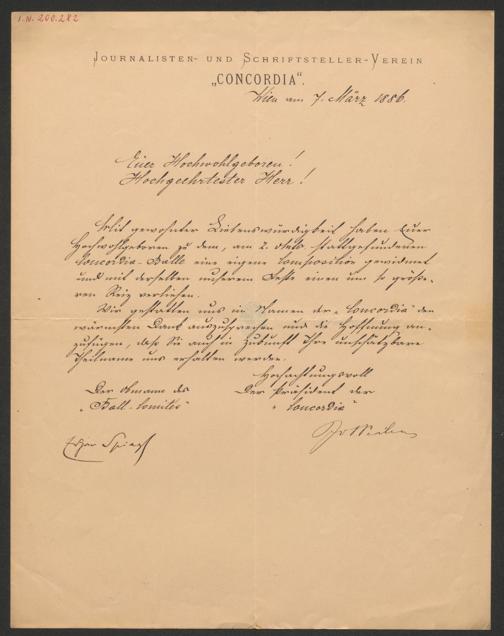 I.N. 200.282
JOURNALISTEN- UND SCHRIFTSTELLER-VEREIN
„CONCORDIA“.
Wien am 7. März 1886.
Euer Hochwohlgeboren!
Hochgeehrtester Herr!
Mit gewohnter Liebenswürdigkeit haben Euer
Hochwohlgeboren zu dem, am 2. stattgefundenen
Concordia-Balle eine eigene Composition gewidmet
und mit derselben unserem Feste einen um so größe-
ren Reiz verliehen.
Wir gestatten uns im Namen der „Concordia“ den
wärmsten Dank auszusprechen und die Hoffnung an-
zufügen, daß Sie auch in Zukunft Ihre unschätzbare
Theilname uns erhalten werden.
Hochachtungsvoll
Der Obmann des
Der Präsident der
„Ball-Comités“
„Concordia“
Edgar Spiegl